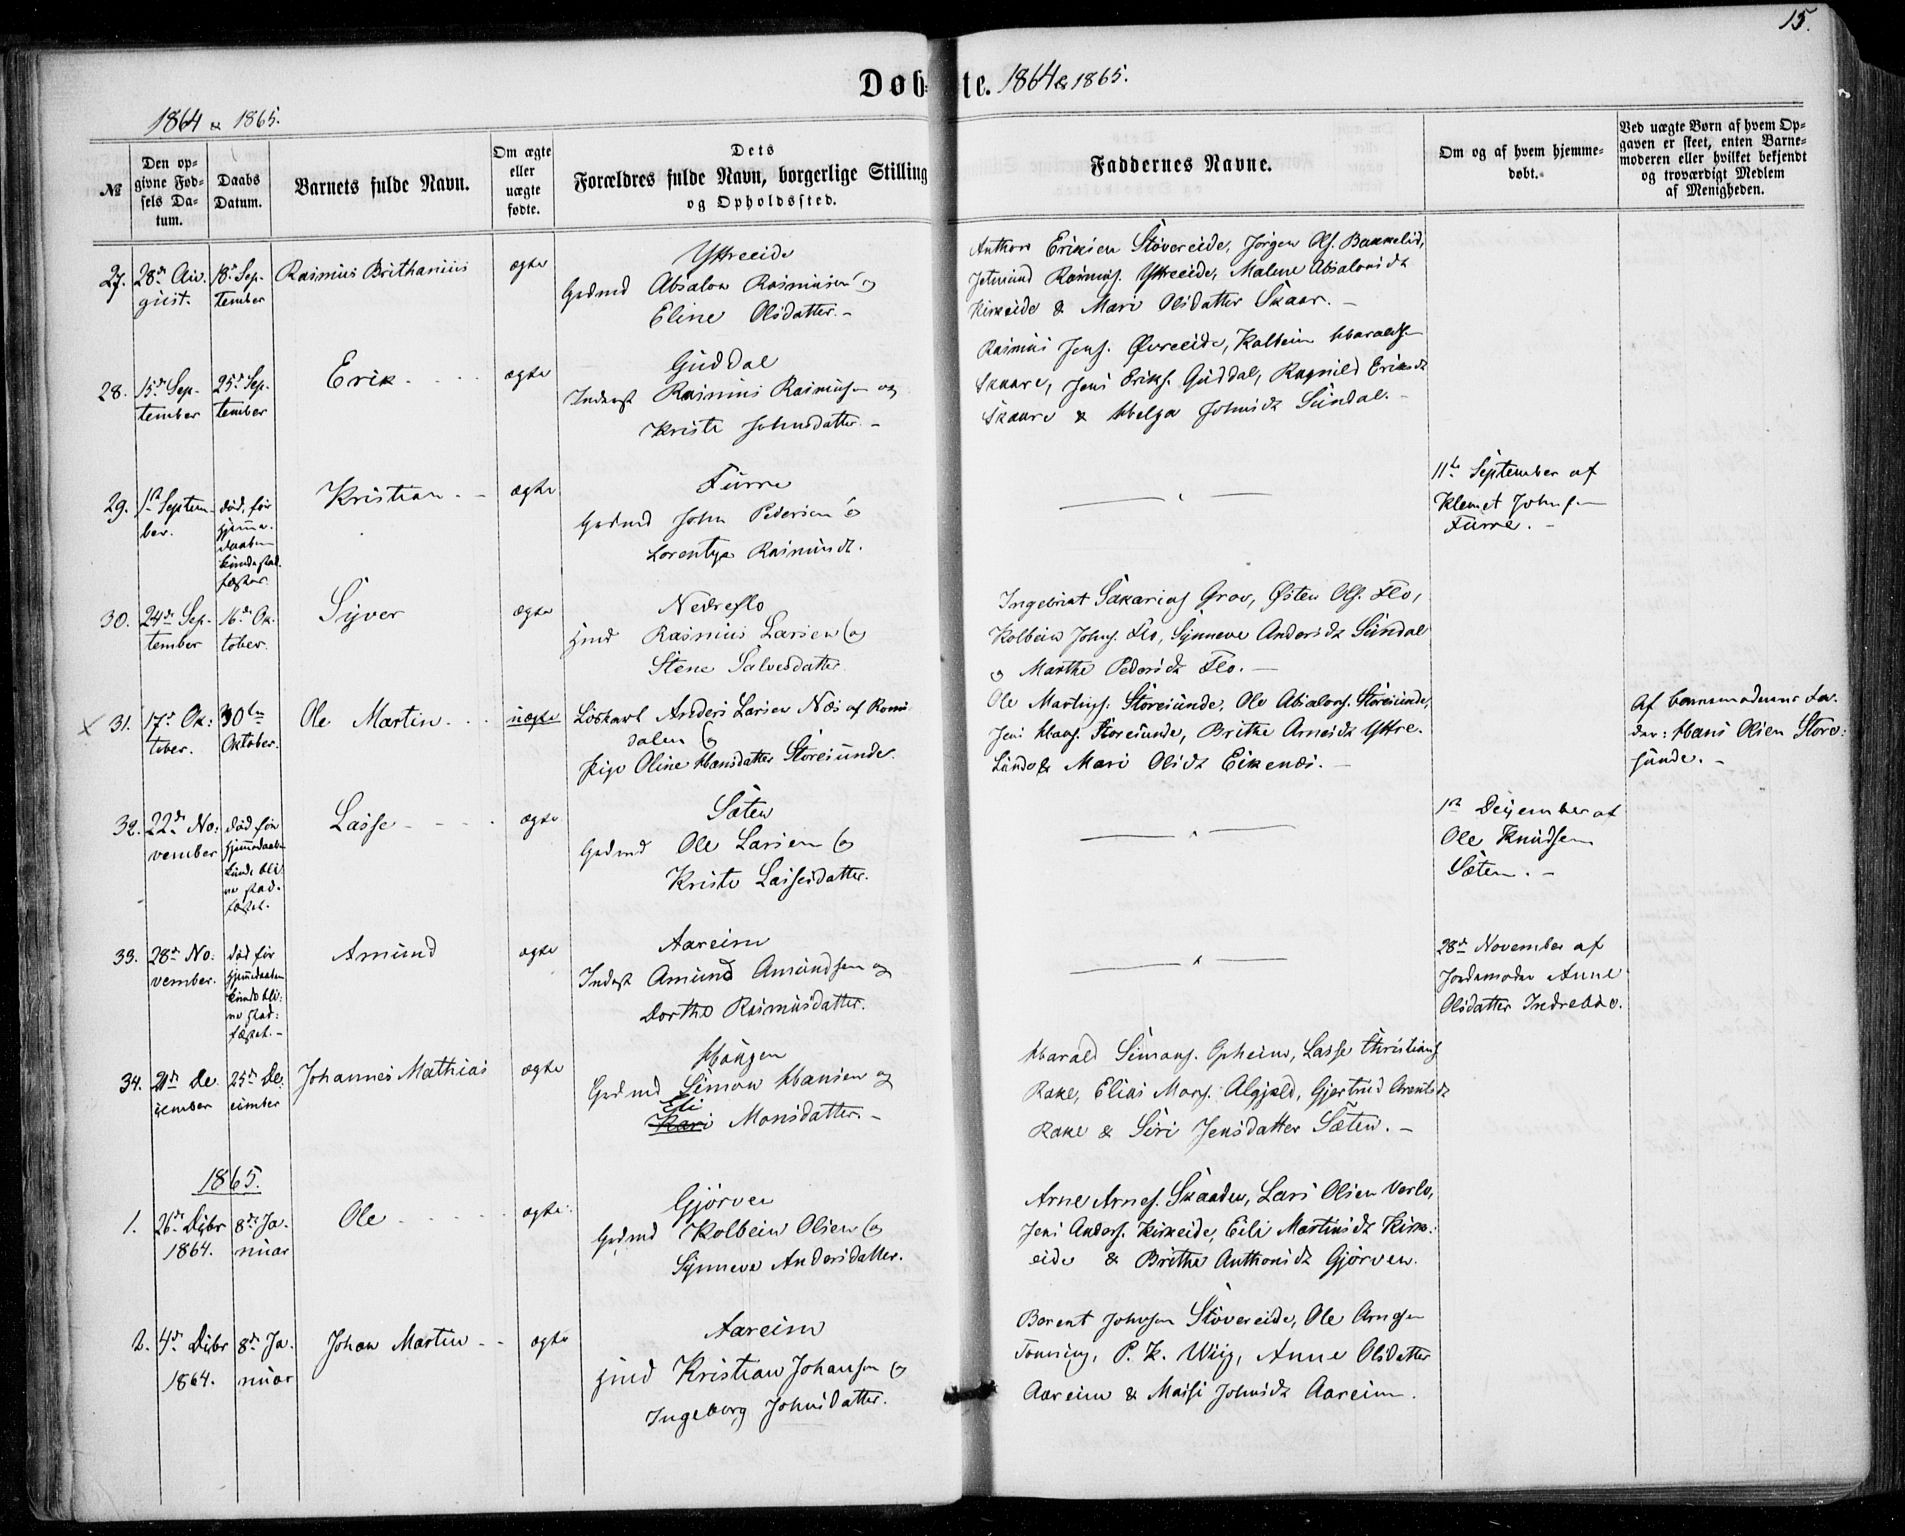 15.
Døbte. 1864 & 1865.
1864 & 1865.
№
Den opgivne Fødsels Datum.
Daabs Datum.
Barnets fulde Navn.
Om ægte eller uægte fødte.
Dets Forældres fulde Navn, borgerlige Stilling og Opholdssted.
Faddernes Navne.
Om og af hvem hjemmedøbt.
Ved uægte Børn af hvem Opgaven er skeet, enten Barnemoderen eller hvilket bekjendt og troværdigt Medlem af Menigheden.
27. 28de August. 18de September Rasmus Brithanius ægte
Yttreeide
Grdmd Absalon Rasmusen og
Eline Olsdatter. -
Anthon Eriksen Støvereide, Jørgen Ols. Bakkelid,
Jetmund Rasmus. Yttreeide, Malene Absalonsdt
Kirkeide & Mari Olsdatter Skaar. -
28. 15de September 25de September Erik ægte
Guddal
Inderst Rasmus Rasmusen og
Kristi Johnsdatter. -
Rasmus Jens. Øvreeide, Kolbein Haralds.
Skaare, Jens Eriks. Guddal, Ragnild Eriksdt
Skaare & Helga Johnsdt Sundal. -
29. 1ste September. død, før hjemmedaaben kunde stadfæstes. Kristian ægte
Furre
Grdmd John Pedersen &
Lorentza Rasmusdt.
11te September af
Klemet Johnsen
Furre. -
30. 24de September 16de Oktober. Syver ægte
Nedreflo
Hmd Rasmus Larsen og
Stene Salvesdatter
Ingebrigt Sakarias. Grov, Østen Ols. Flo,
Kolbein Johns. Flo, Synneve Andersdt Sundal
og Marthe Pedersdt Flo. -
× 31. 17de Oktober. 30te Oktober. Ole Martin uægte
Løskarl Anders Larsen Næs af Romsdalen og
Pige Oline Hansdatter Storesunde.
Ole Martins. Storesunde, Ole Absalons. Storesunde,
Jens Hans. Storesunde, Brithe Arnesdt Yttre-
Lunde & Mari Olsdt Eikenæs. -
Af barnemoderens Fader: Hans Olsen Storesunde. -
32. 22de November død før hjemmedaaben kunde blive stadfæstet. Lasse ægte
Sæten
Grdmd Ole Larsen og
Kristi Lassesdatter.
1ste Dezember af
Ole Knudsen
Sæten. -
33. 28de November. død før hjemmedaaben kunde blive stadfæstet. - Amund ægte
Aareim
Inderst Amund Amundsen og
Dorthe Rasmusdatter.
28de November af
Jordemoder Anne
Olsdatter Indrebøe.
34. December 25de December Johannes Mathias ægte
Haugen
Grdmd Simon Hansen og
Eli
Kari Monsdatter. -
Harald Simons. Opheim, Lasse Christians.
Rake, Elias Mons. Algjeld, Gjertrud Arentsdt
Rake & Siri Jensdatter Sæten. -
1865.
1. 26de Dzbr 1864. 8de Januar Ole ægte
Gjørven
Grdmd Kolbein Olsen og
Synneve Andersdatter.
Arne Arnes. Skaaden, Lars Olsen Verlo,
Jens Anders. Kirkeide, Eili Martinsdt Kirkeide & Brithe Anthonsdt Gjørven.
2. 4de Dzbr 1864. 8de Januar Johan Martin ægte
Aareim
Hmd Kristian Johansen og
Ingeborg Johnsdatter.
Berent Johnsen Støvereide, Ole Arnesen
Tonning, P. K. Wiig, Anne Olsdatter
Aareim & Maisi Johnsdt Aareim.